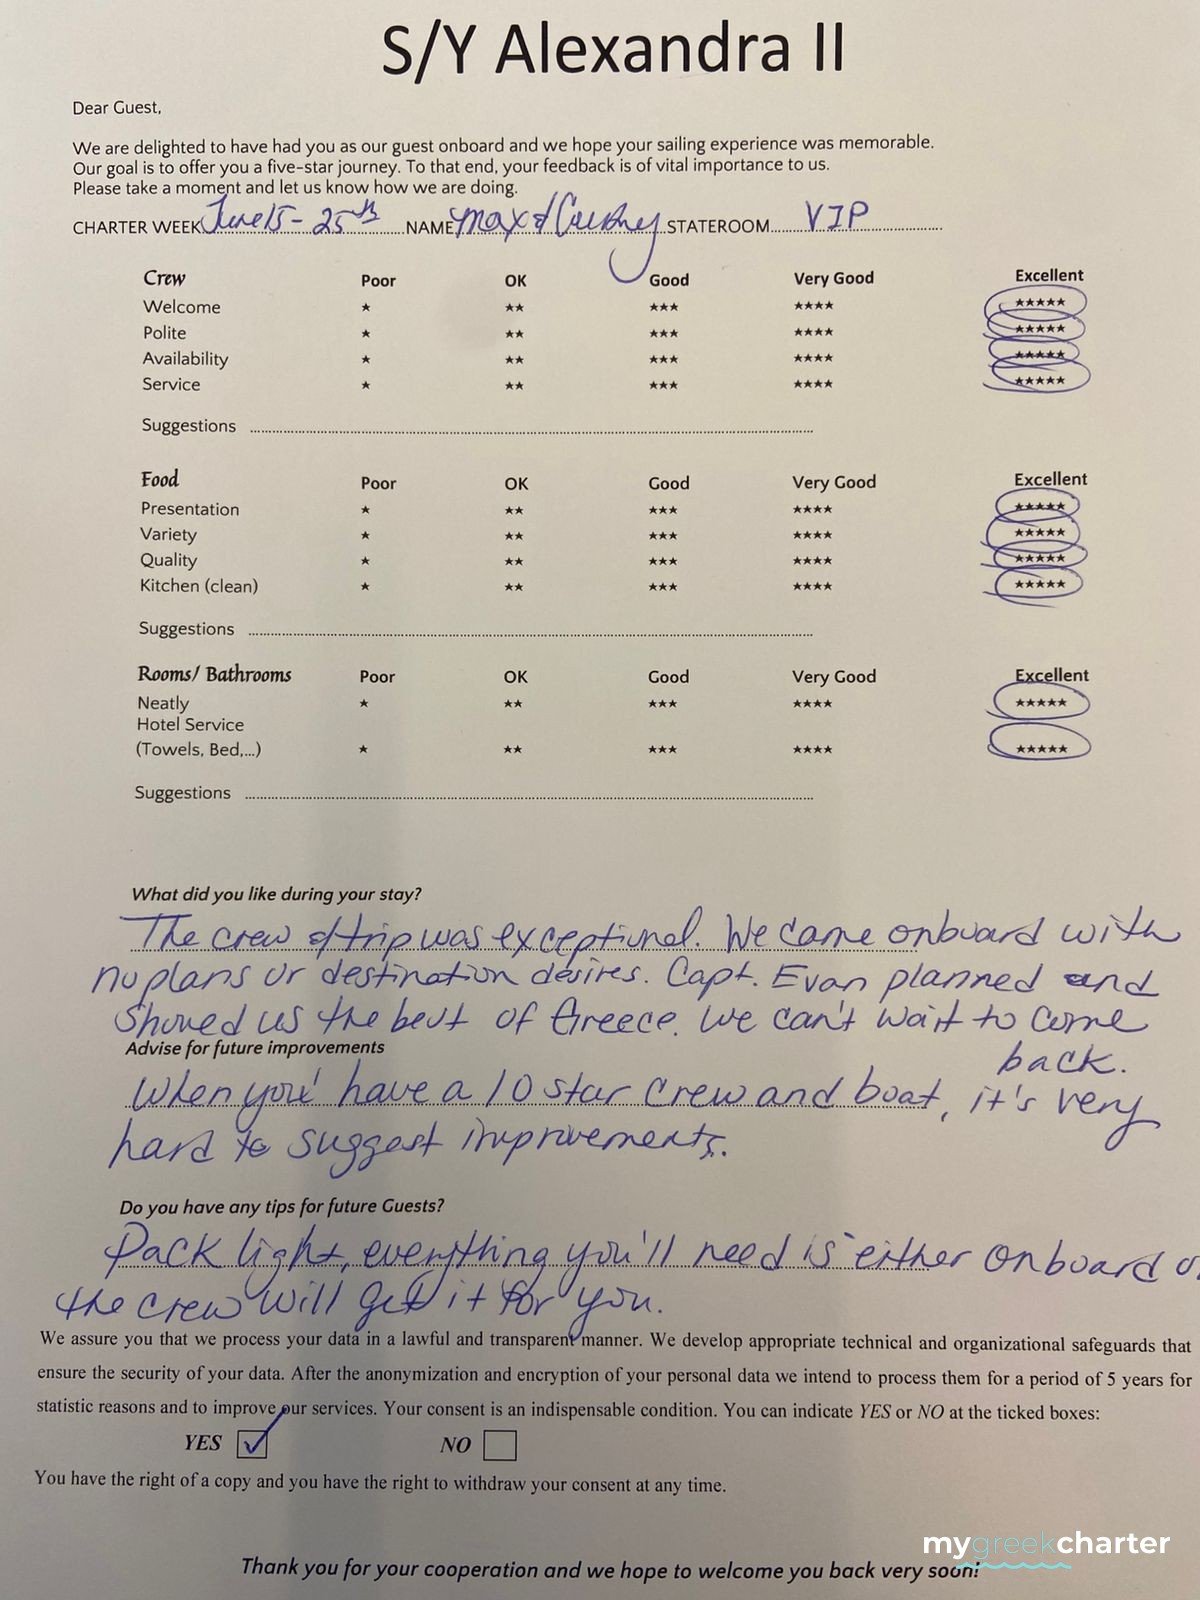 S/Y Alexandra II
Dear Guest,
We are delighted to have had you as our guest onboard and we hope your sailing experience was memorable.
Our goal is to offer you a five-star journey. To that end, your feedback is of vital importance to us.
Please take a moment and let us know how we are doing.
CHARTER WEEK June 15 - 25th NAME Max & STATEROOM VIP
Crew Poor OK Good Very Good Excellent
Welcome ★ ★★ ★★★ ★★★★ ★★★★★
Polite ★ ★★ ★★★ ★★★★ ★★★★★
Availability ★ ★★ ★★★ ★★★★ ★★★★★
Service ★ ★★ ★★★ ★★★★ ★★★★★
Suggestions
Food Poor OK Good Very Good Excellent
Presentation ★ ★★ ★★★ ★★★★ ★★★★★
Variety ★ ★★ ★★★ ★★★★ ★★★★★
Quality ★ ★★ ★★★ ★★★★ ★★★★★
Kitchen (clean) ★ ★★ ★★★ ★★★★ ★★★★★
Suggestions
Rooms/ Bathrooms Poor OK Good Very Good Excellent
Neatly ★ ★★ ★★★ ★★★★ ★★★★★
Hotel Service
(Towels, Bed,...) ★ ★★ ★★★ ★★★★ ★★★★★
Suggestions
What did you like during your stay?
The crew & trip was exceptional. We came onboard with
no plans or destination desires. Capt. Evan planned and
showed us the best of Greece. We can't wait to come
back.
Advise for future improvements
When you have a 10 star crew and boat, it's very
hard to suggest improvements.
Do you have any tips for future Guests?
Pack light, everything you'll need is either onboard or
the crew will get it for you.
We assure you that we process your data in a lawful and transparent manner. We develop appropriate technical and organizational safeguards that
ensure the security of your data. After the anonymization and encryption of your personal data we intend to process them for a period of 5 years for
statistic reasons and to improve our services. Your consent is an indispensable condition. You can indicate YES or NO at the ticked boxes:
YES NO
You have the right of a copy and you have the right to withdraw your consent at any time.
mygreekcharter
Thank you for your cooperation and we hope to welcome you back very soon!